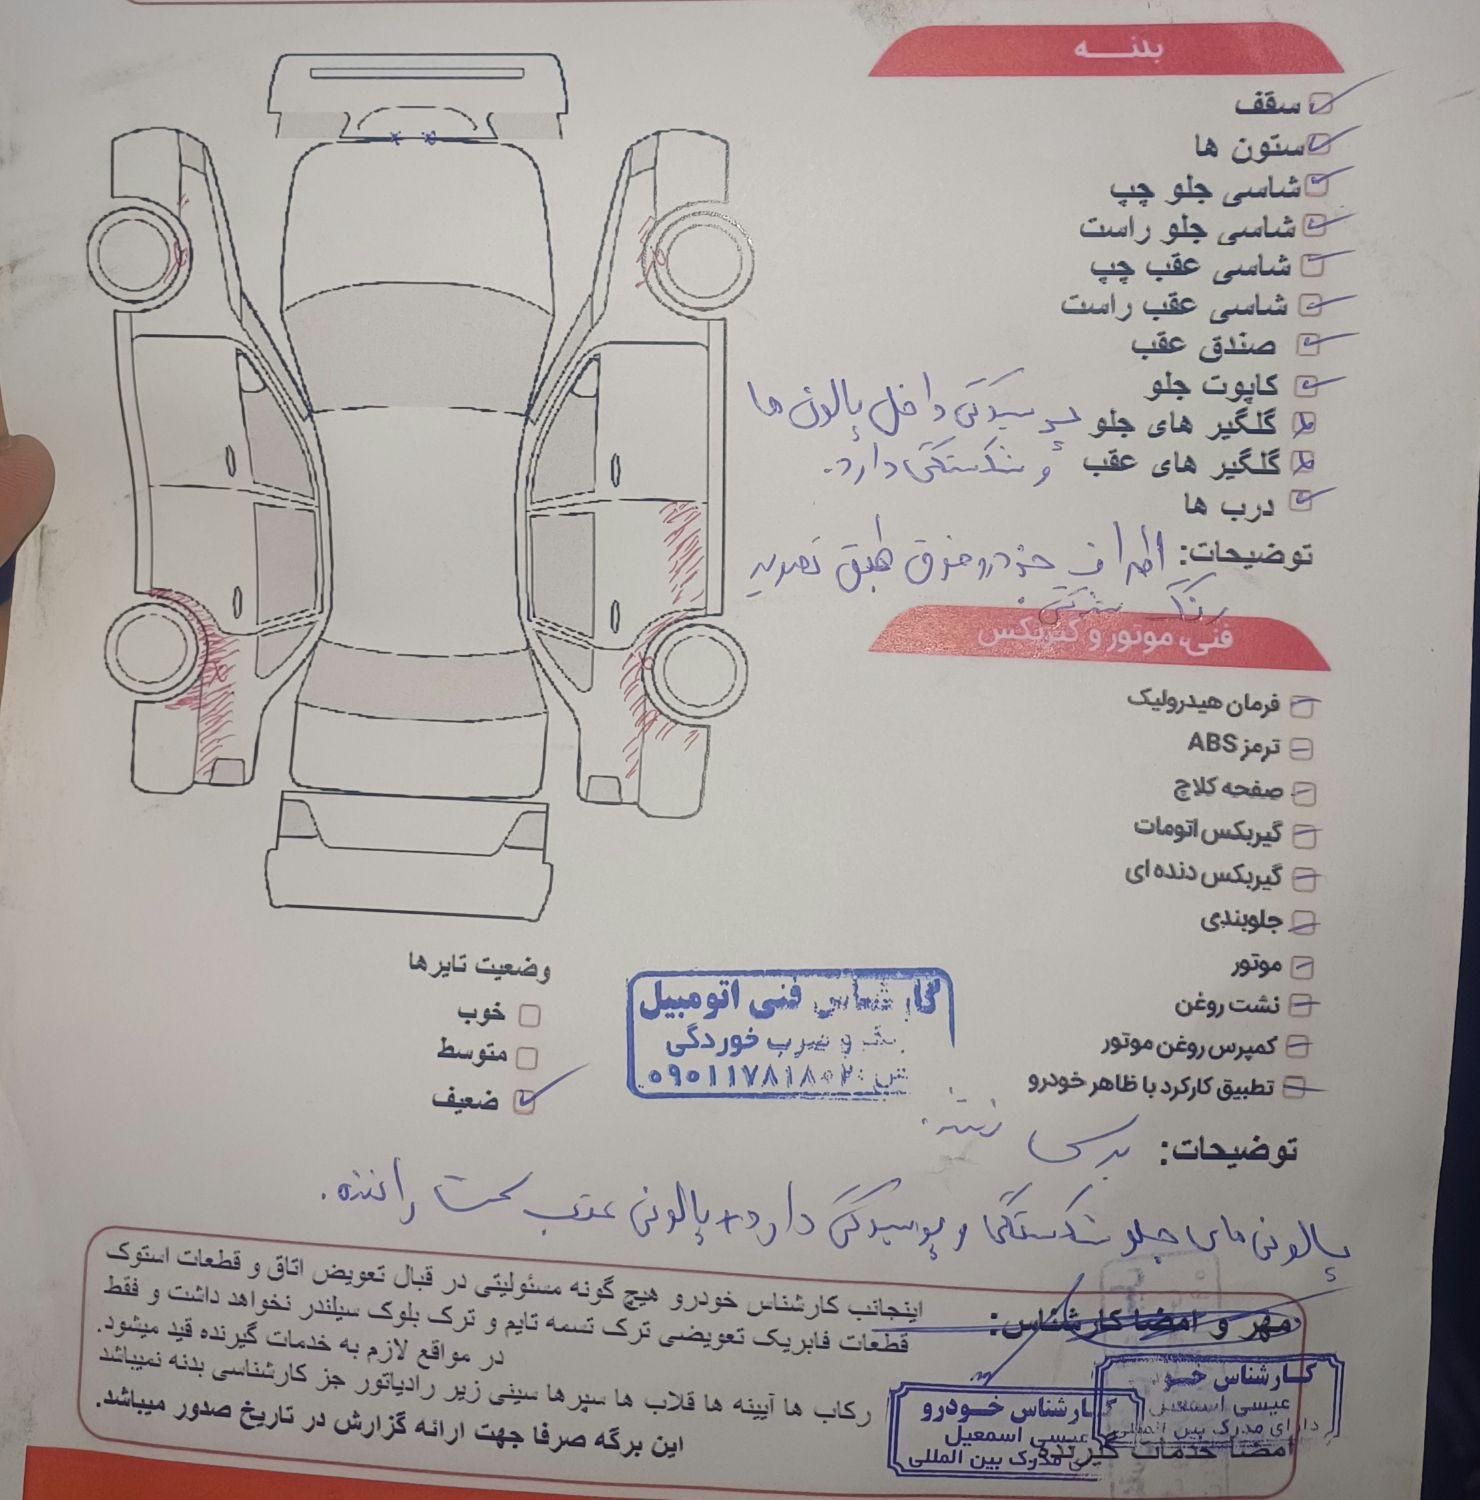 بدنـــه
سقف
ستون ها
شاسی جلو چپ
شاسی جلو راست
شاسی عقب چپ
شاسی عقب راست
صندق عقب
کاپوت جلو
گلگیر های جلو پوسیدگی داخل پالونی ها
گلگیر های عقب و شکستگی دارد.
درب ها
توضیحات: اطراف خودرو فوق طبق تصویر
رنگ شدگی.
فنی، موتور و گیربکس
فرمان هیدرولیک
ترمز ABS
صفحه کلاچ
گیربکس اتومات
گیربکس دنده ای
جلوبندی
موتور
نشت روغن
کمپرس روغن موتور
تطبیق کارکرد با ظاهر خودرو
توضیحات: بررسی نشد.
پالونی های جلو شکستگی و پوسیدگی دارد + پالونی عقب سمت راننده.
وضعیت تایرها
خوب
متوسط
ضعیف
کارشناس فنی اتومبیل
رنگ و ضرب خوردگی
۰۹۰۱۱۷۸۱۸۰۲
اینجانب کارشناس خودرو هیچ گونه مسئولیتی در قبال تعویض اتاق و قطعات استوک
قطعات فابریک تعویضی ترک تسمه تایم و ترک بلوک سیلندر نخواهد داشت و فقط
در مواقع لازم به خدمات گیرنده قید میشود.
رکاب ها آیینه ها قلاب ها سپرها سینی زیر رادیاتور جز کارشناسی بدنه نمیباشد
این برگه صرفا جهت ارائه گزارش در تاریخ صدور میباشد.
مهر و امضا کارشناس:
کارشناس خودرو
عیسی اسمعیل
مدرک بین المللی
کارشناس خو
عیسی اسمعیل
دارای مدرک بین المللی
امضا خدمات گیرنده